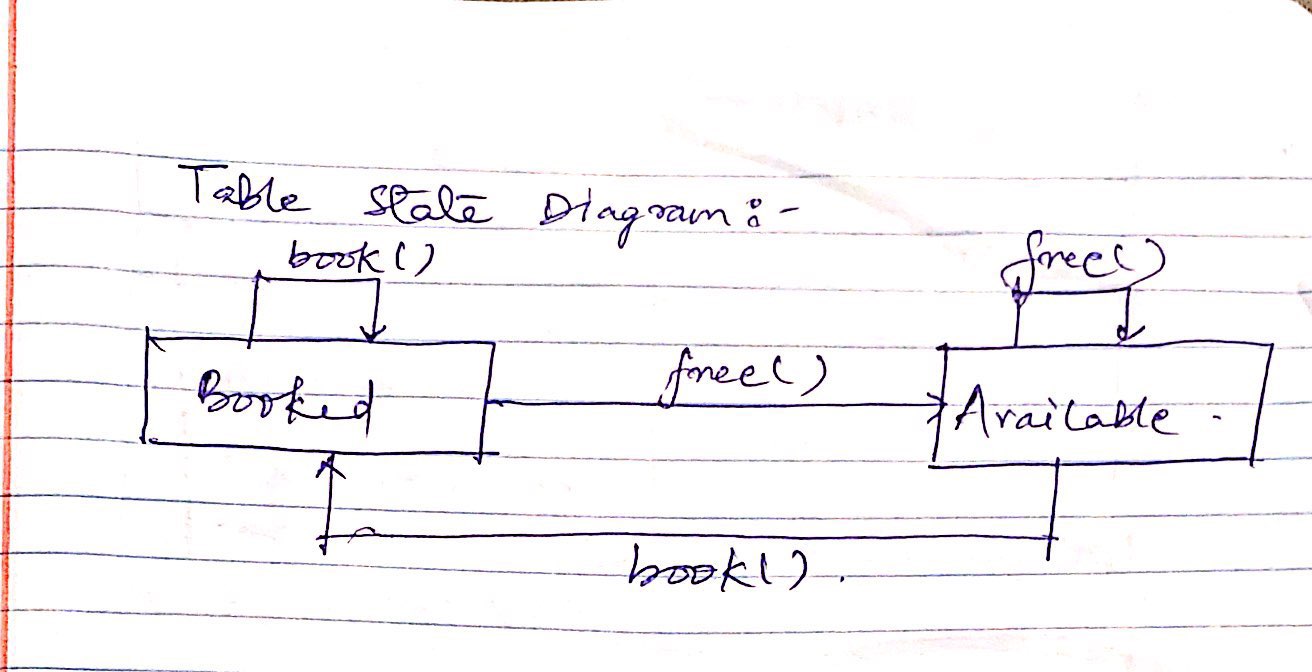 Table State Diagram :-
book()
free()
free()
Booked
Available
book().